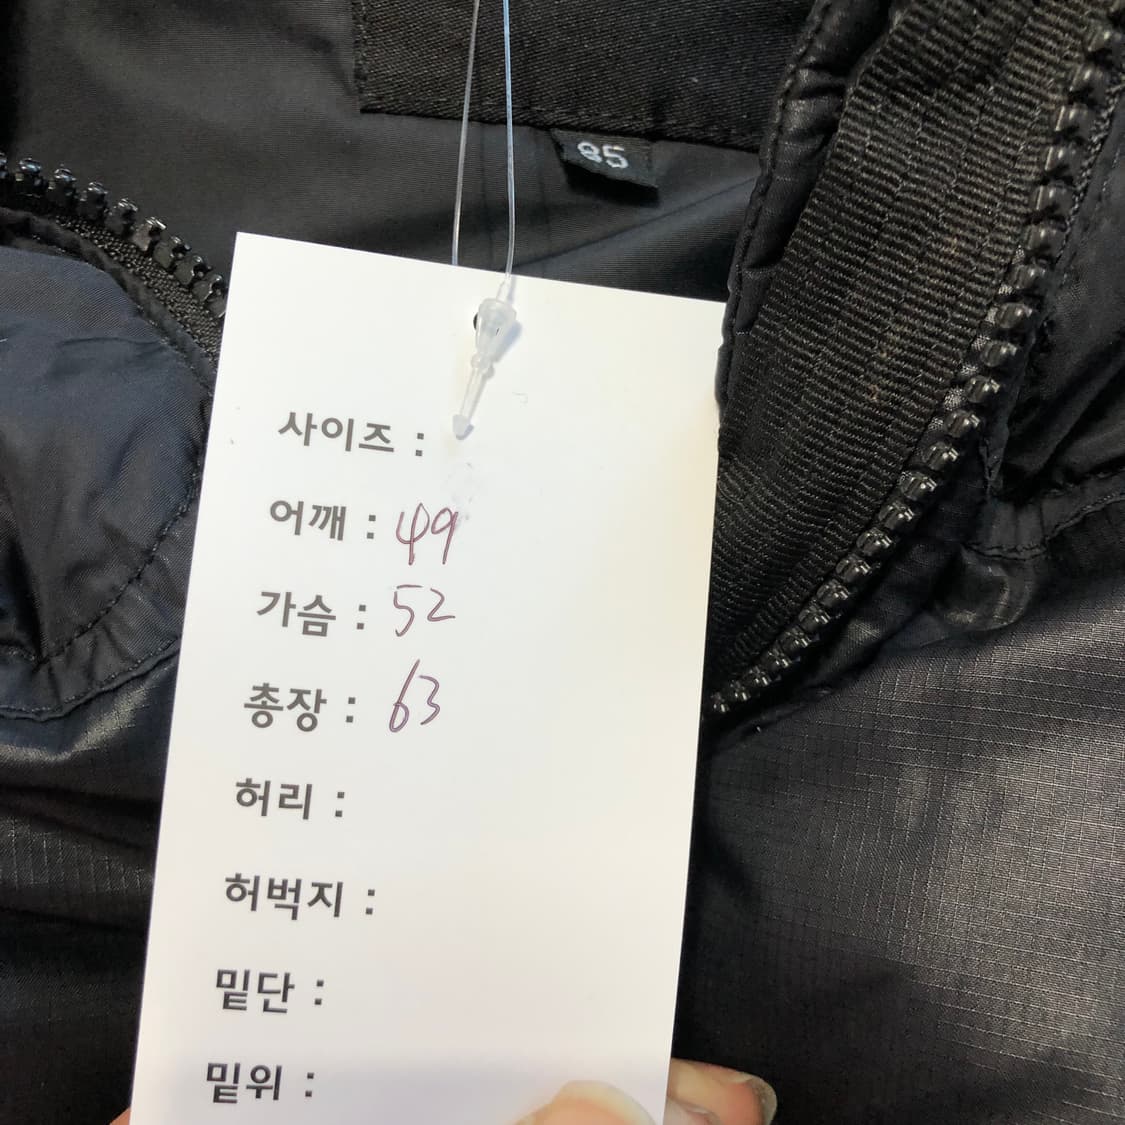 85
사이즈 :
어깨 : 49
가슴 : 52
총장 : 63
허리 :
허벅지 :
밑단 :
밑위 :